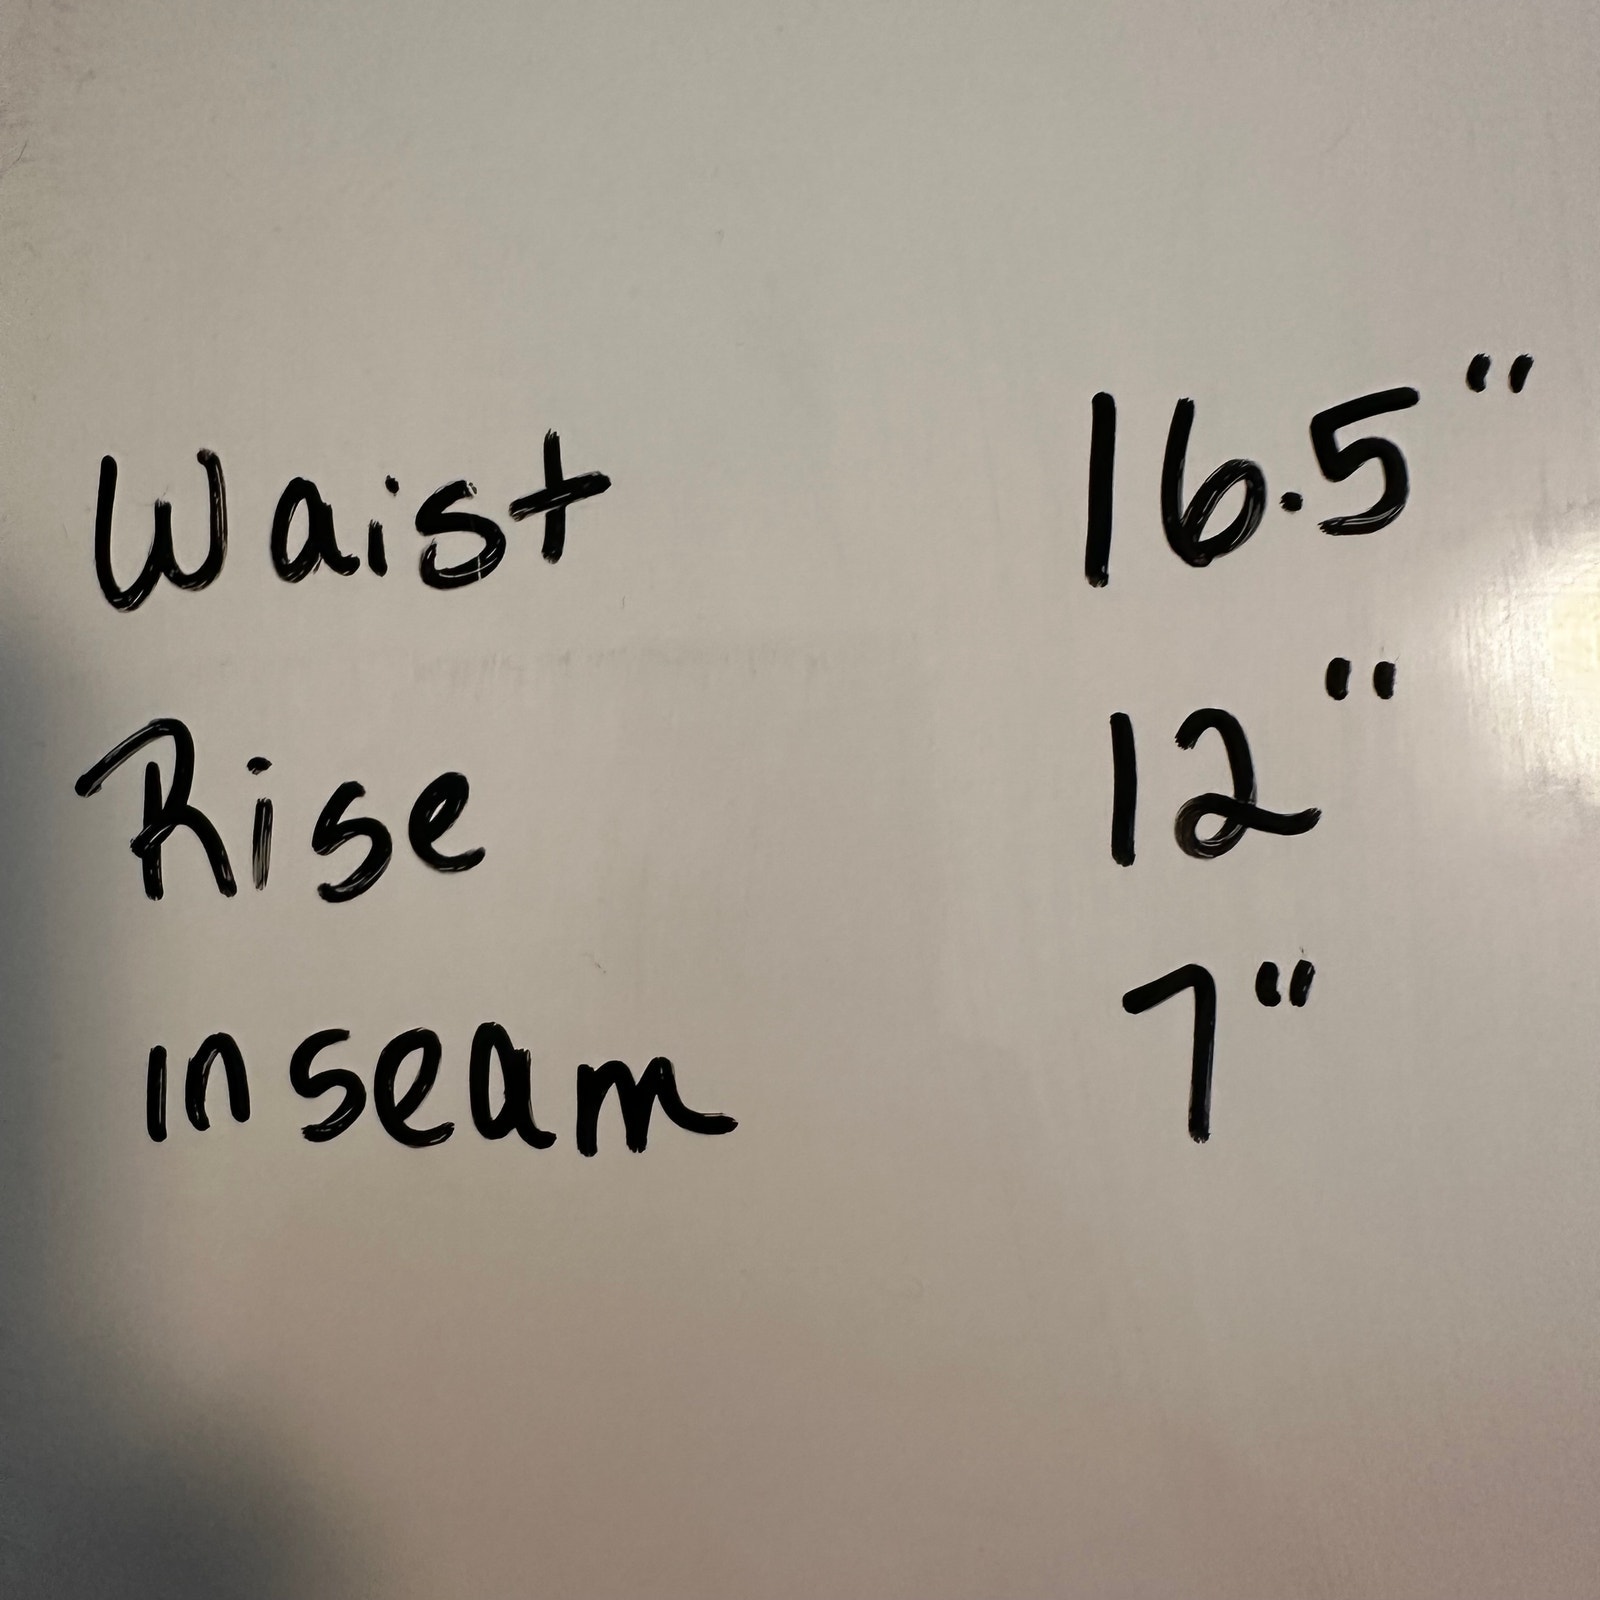 Waist 16.5"
Rise 12"
inseam 7"